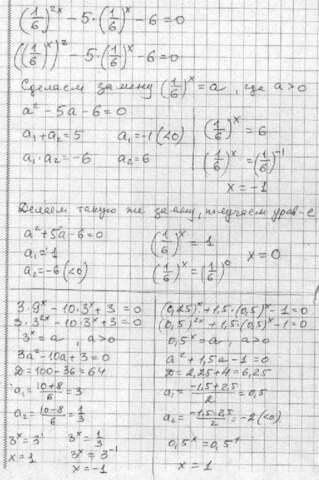 (1/6)^2x − 5·(1/6)^x − 6 = 0
((1/6)^x)^2 − 5·(1/6)^x − 6 = 0
Сделаем замену (1/6)^x = a, где a>0
a² − 5a − 6 = 0
a₁ + a₂ = 5
a₁ · a₂ = −6
a₁ = −1 (<0)
a₂ = 6
(1/6)^x = 6
(1/6)^x = (1/6)^−1
x = −1
Делаем такую же замену, получаем урав-е
a² + 5a − 6 = 0
a₁ = 1
a₂ = −6 (<0)
(1/6)^x = 1
(1/6)^x = (1/6)^0
x = 0
3·9^x − 10·3^x + 3 = 0
3·3^2x − 10·3^x + 3 = 0
3^x = a, a>0
3a² − 10a + 3 = 0
D = 100 − 36 = 64
a₁ = (10+8)/6 = 3
a₂ = (10−8)/6 = 1/3
3^x = 3¹
x = 1
3^x = 1/3
3^x = 3^−1
x = −1
(0,25)^x + 1,5·(0,5)^x − 1 = 0
(0,5)^2x + 1,5·(0,5)^x − 1 = 0
0,5^x = a, a>0
a² + 1,5a − 1 = 0
D = 2,25 + 4 = 6,25
a₁ = (−1,5+2,5)/2 = 0,5
a₂ = (−1,5−2,5)/2 = −2 (<0)
0,5^x = 0,5¹
x = 1